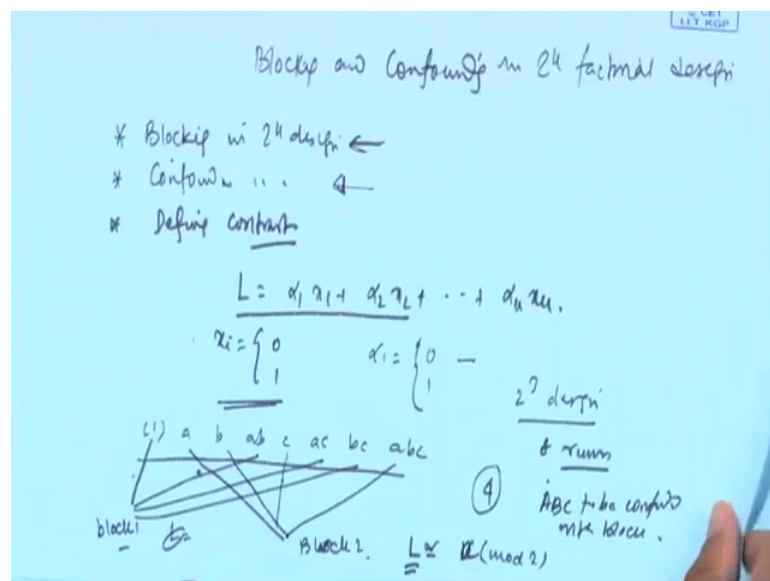 CET
I.I.T KGP
Blocking and Confounding in 2^k factorial design
* Blocking in 2^k design ←
* Confoun.. "
* Defining contrast
L = α1 x1 + α2 x2 + ... + αk xk.
xi = { 0 1
αi = { 0 1 —
2^3 design
8 runs
(1) a b ab c ac bc abc
4
ABC to be confound
with block.
block1
Block 2.
L ≅ (mod 2)